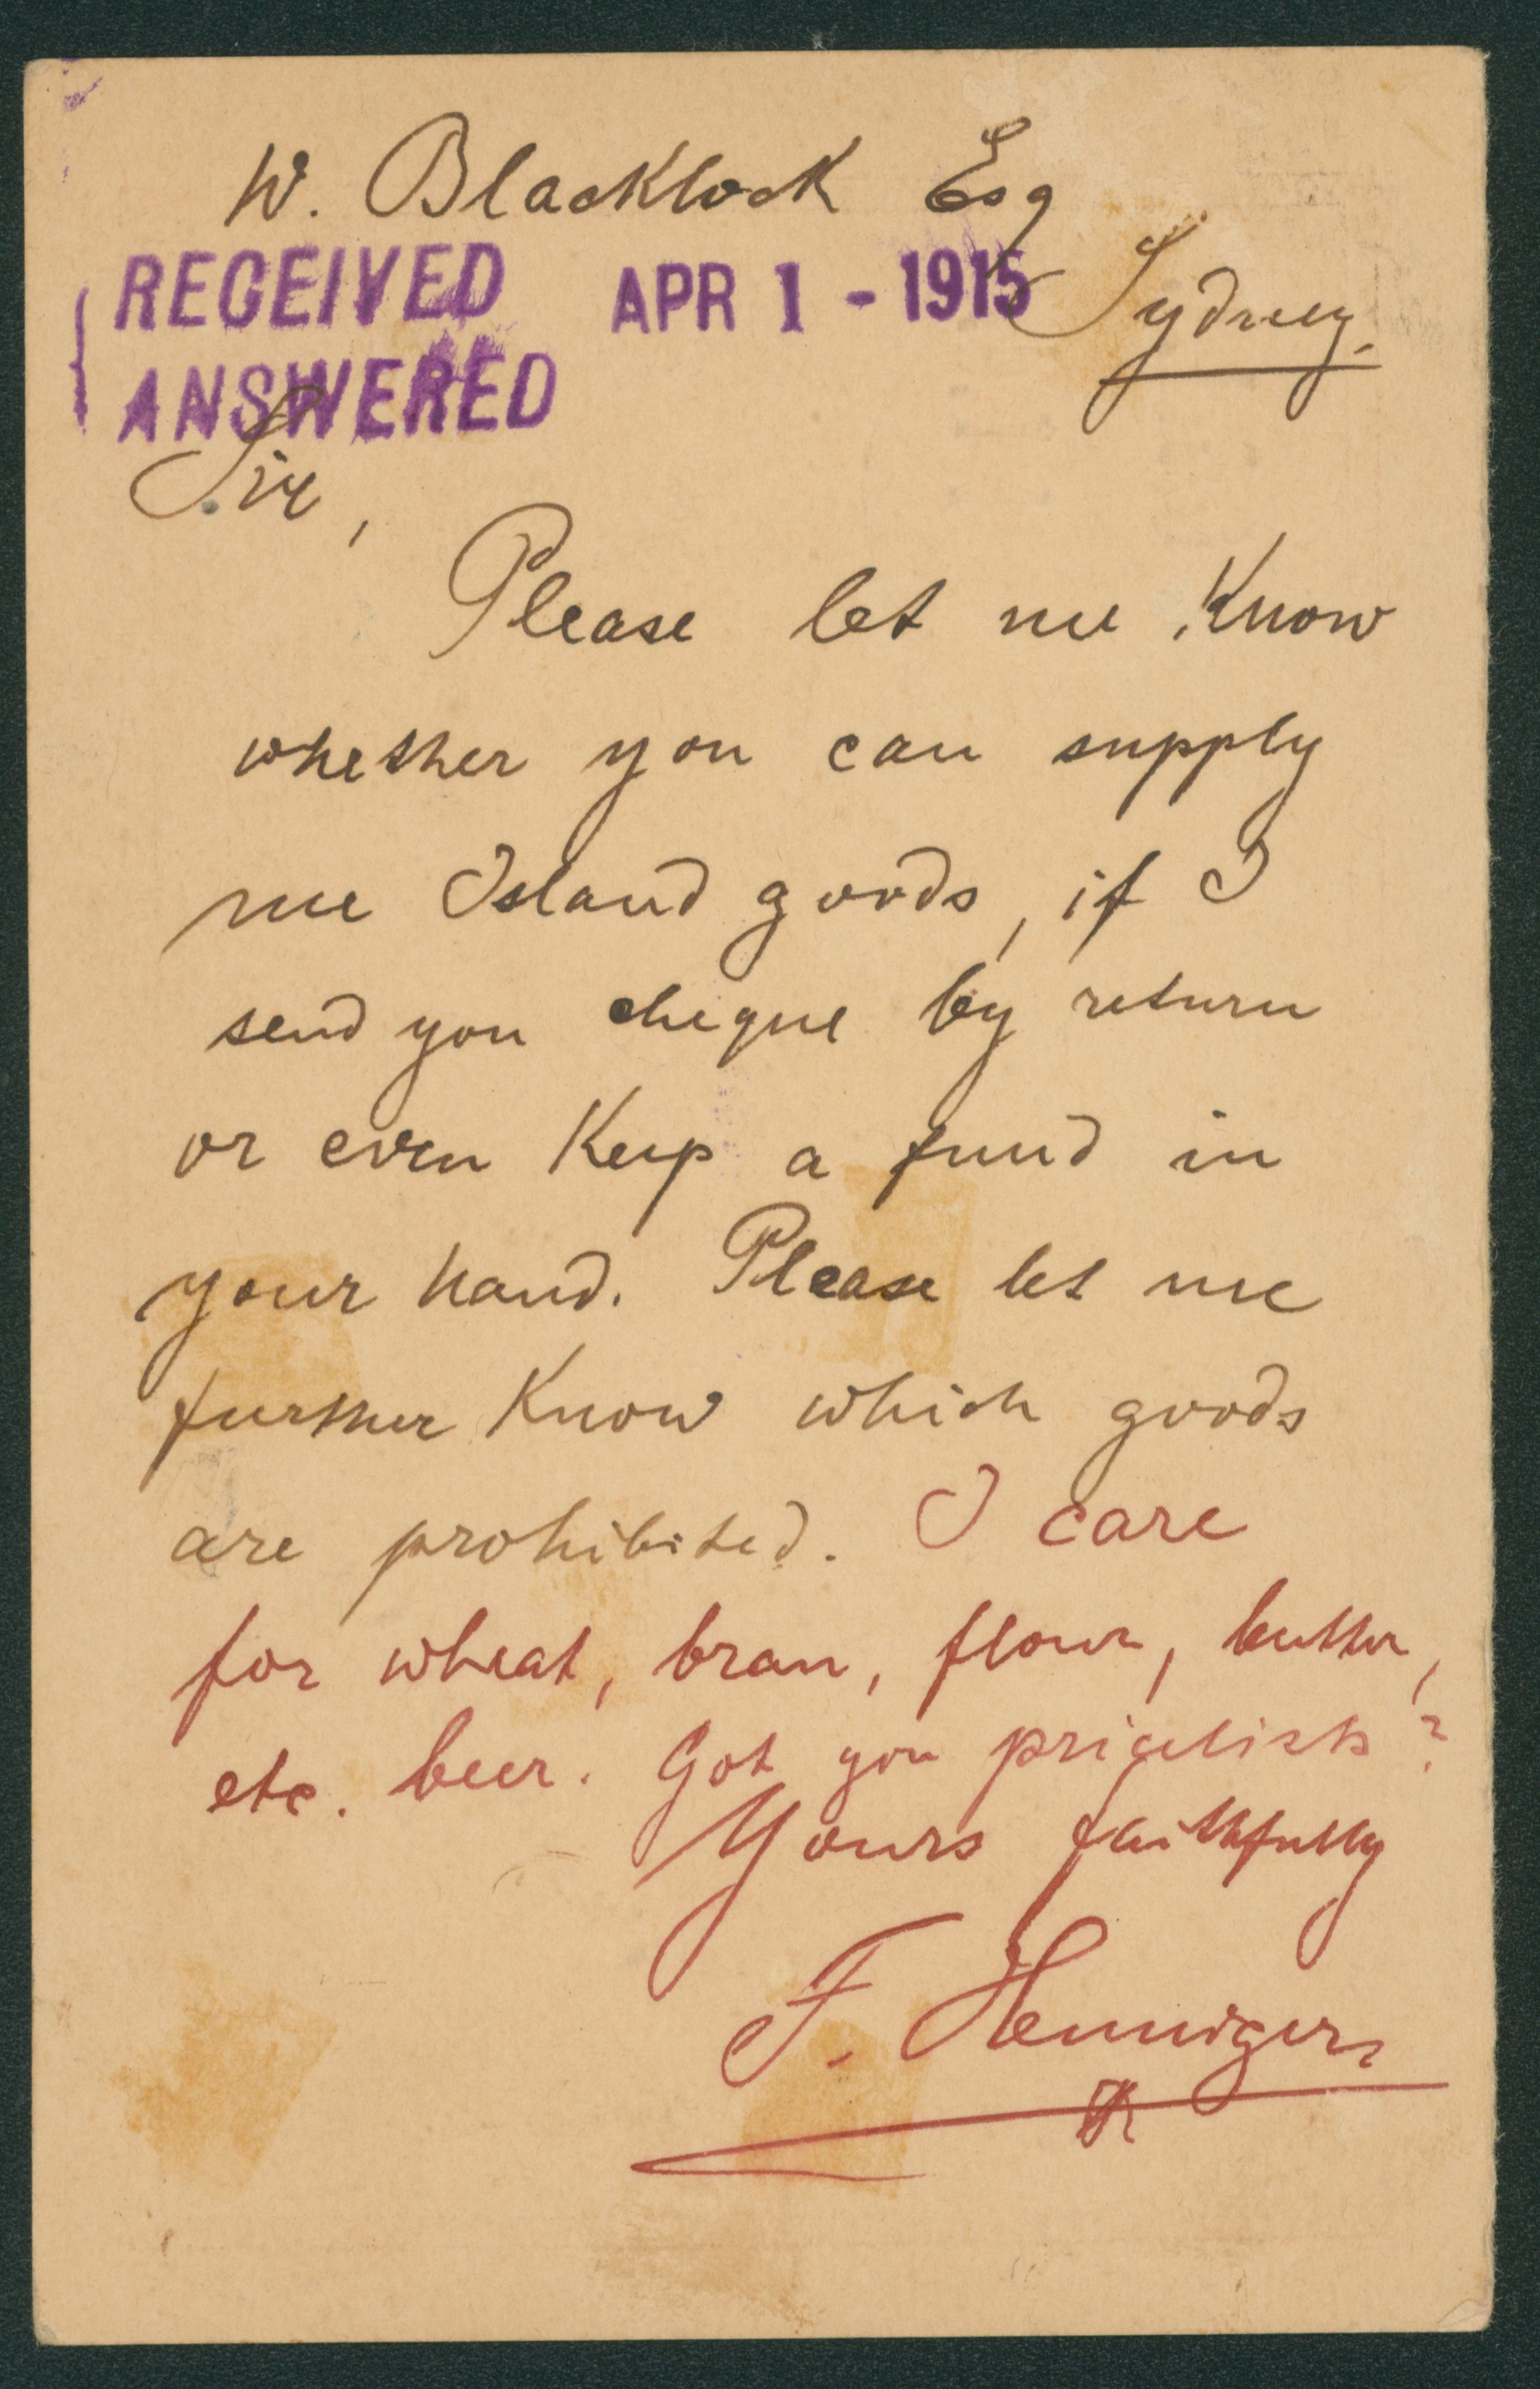 W. Blacklock Esq
RECEIVED APR 1 - 1915
Sydney.
ANSWERED
Sir,
Please let me know
whether you can supply
me Island goods, if I
send you cheque by return
or even keep a fund in
your hand. Please let me
further know which goods
are prohibited. I care
for wheat, bran, flour, butter,
etc. beer. Got you pricelists?
Yours faithfully
F. Hennigers